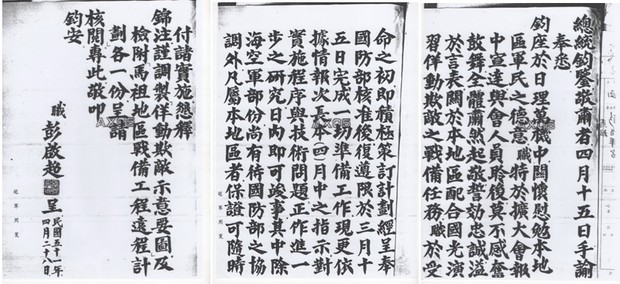 總統鈞鑒敬肅者四月十五日手諭
奉悉
鈞座於日理萬機中關懷慰勉本地
區軍民之德意職特於擴大會報
中宣達與會人員聆後莫不感奮
鼓舞全體肅然起敬誓効忠誠溢
於言表關於本地區配合國光演
習佯動欺敵之戰備任務職於受
命之初即積極策訂計劃經呈奉
國防部核准後復遵限於三月十
五日完成一切準備工作現更依
據情報次長本(四)月中之指示對
實施程序與技術問題正作進一
步之研究日內即可竣事其中除
海空軍部份尚有待國防部之協
調外凡屬本地區者保證可隨時
付諸實施懇釋
錦注謹調製佯動欺敵示意要圖及
檢附馬祖地區戰備工程遠程計
劃各一份呈請
核閱專此敬叩
鈞安
職 彭啟超 呈
民國五十一年
四月二十八日